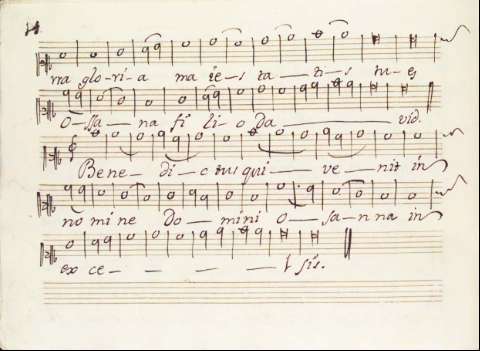 rra glo-ri-a ma ie-s ta-ti-s tu-e,
O-ssa-na fi li-o Da— vid.
Bene-di-ctus qui-ve-nit in
no mi ne Do-mini O-sa-nna in
ex ce- - - - l sis.